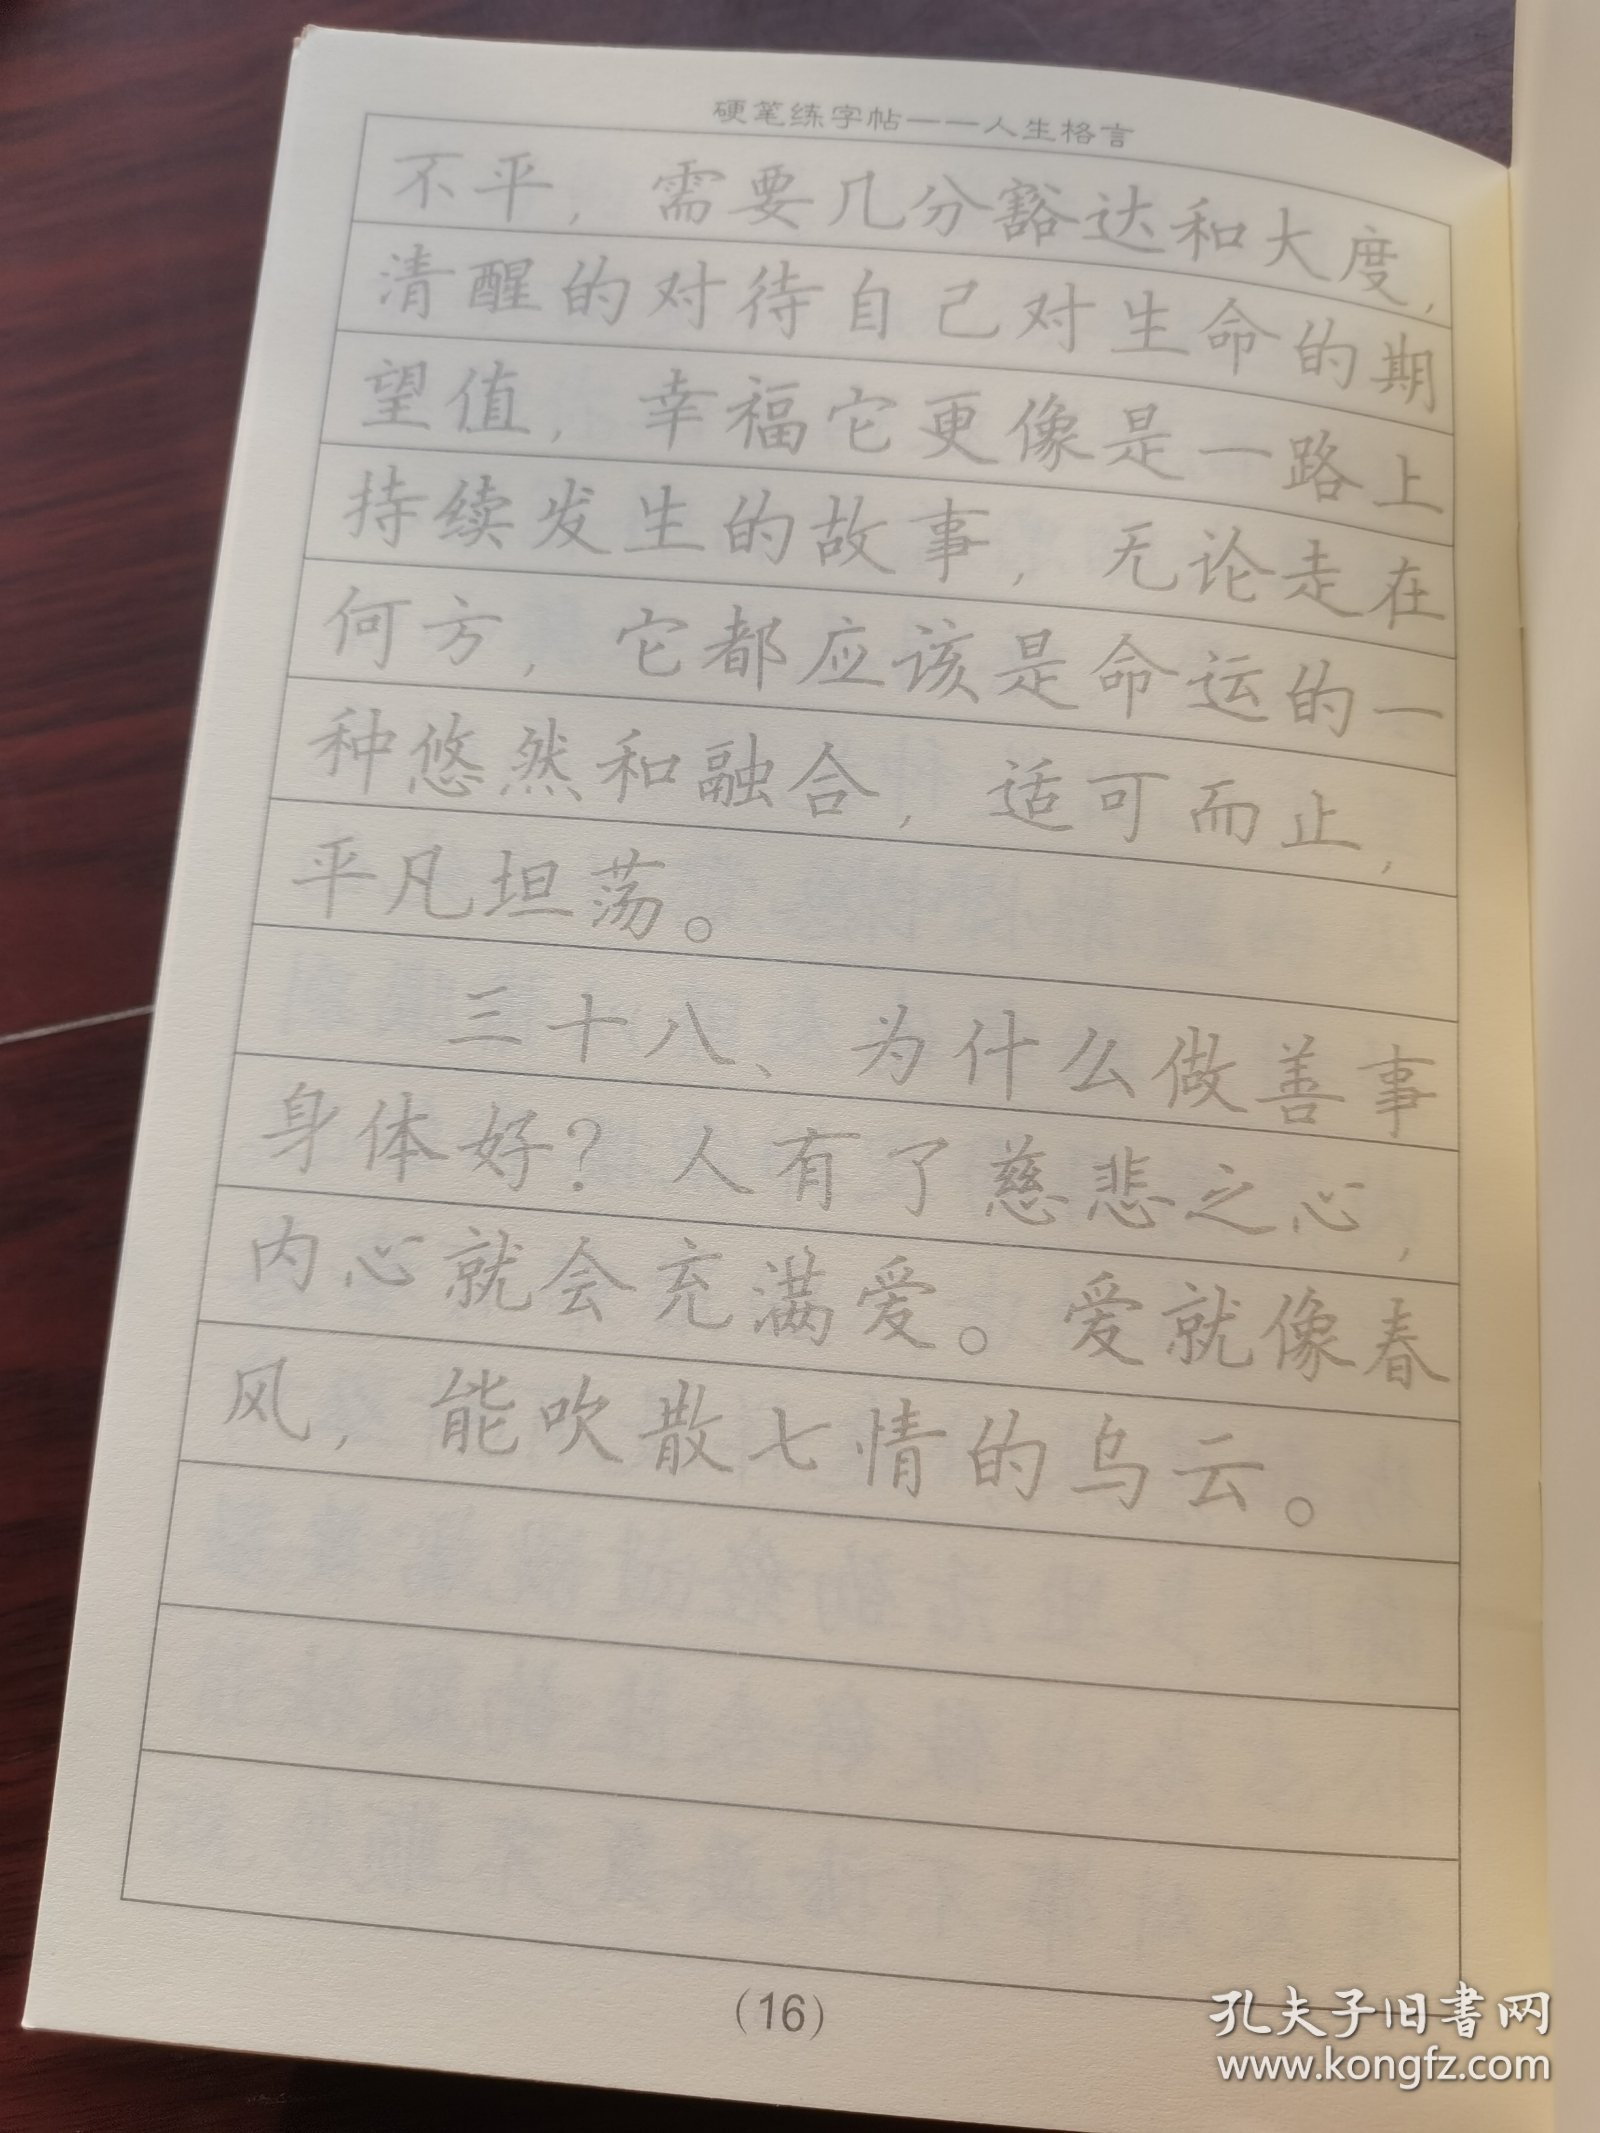 硬笔练字帖——人生格言
不平，需要几分豁达和大度，
清醒的对待自己对生命的期
望值，幸福它更像是一路上
持续发生的故事，无论走在
何方，它都应该是命运的一
种悠然和融合，适可而止，
平凡坦荡。
三十八、为什么做善事
身体好？人有了慈悲之心，
内心就会充满爱。爱就像春
风，能吹散七情的乌云。
（16）
孔夫子旧书网
www.kongfz.com